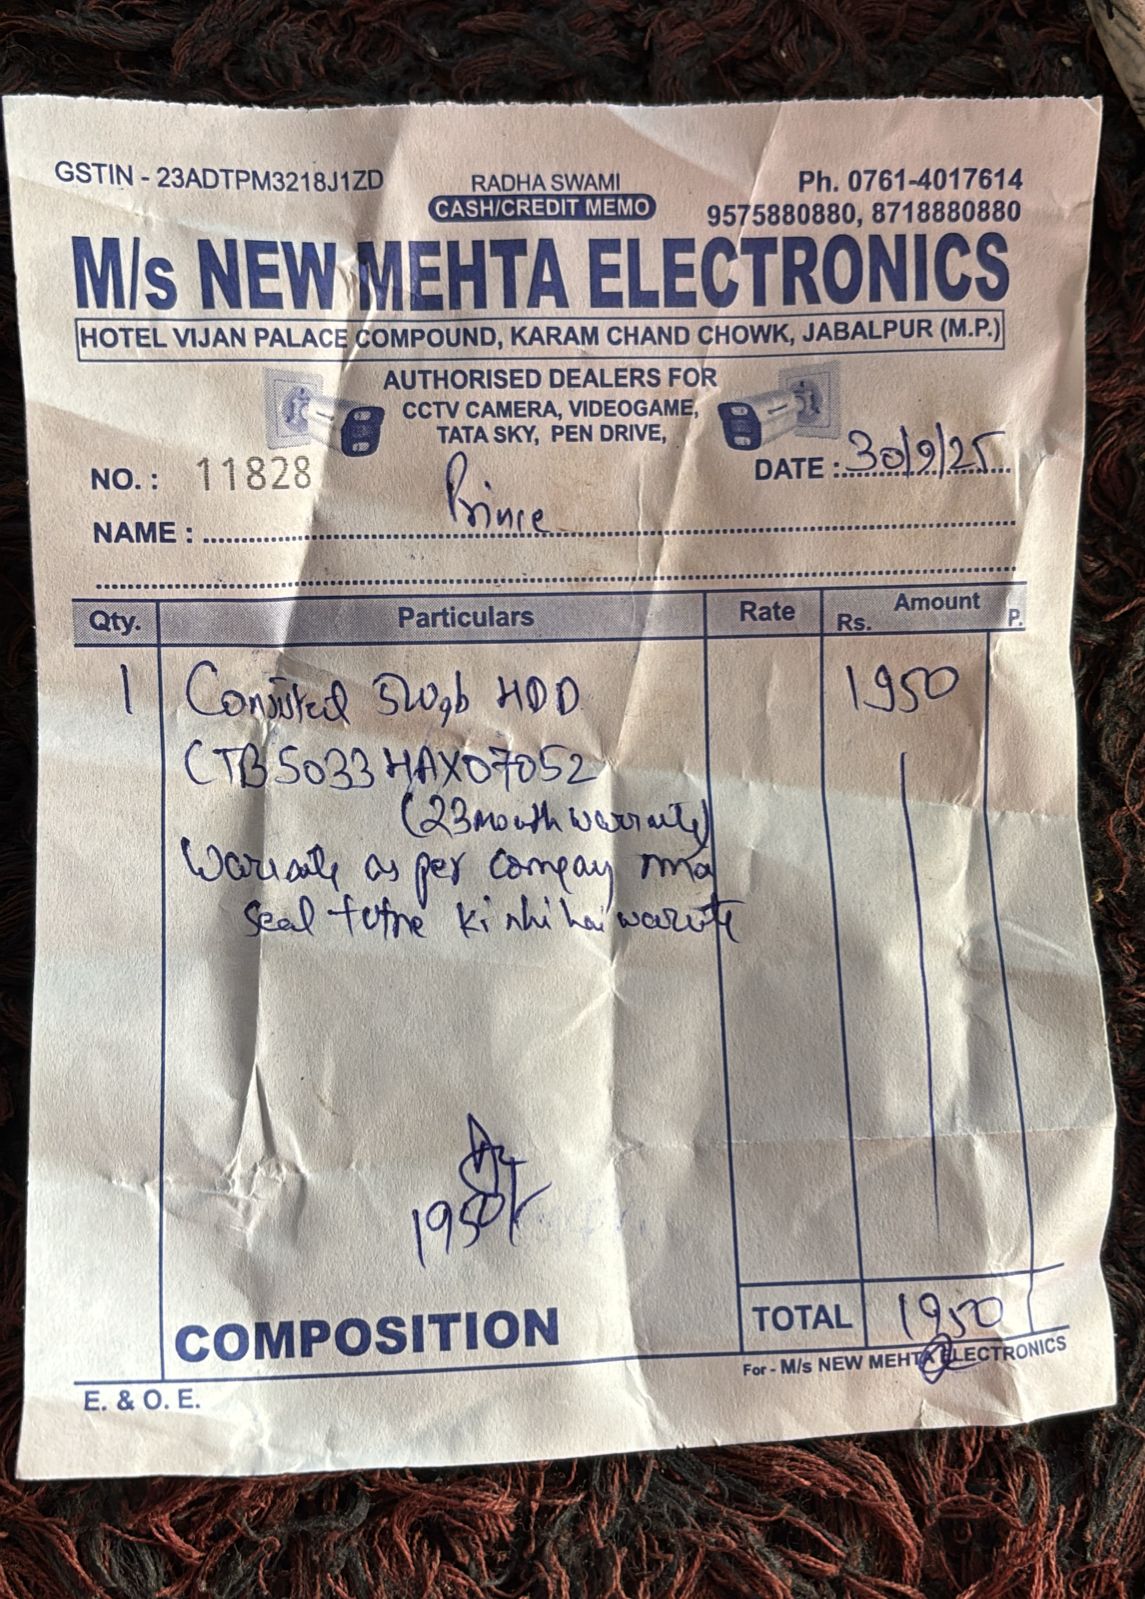 GSTIN - 23ADTPM3218J1ZD
RADHA SWAMI
CASH/CREDIT MEMO
Ph. 0761-4017614
9575880880, 8718880880
M/s NEW MEHTA ELECTRONICS
HOTEL VIJAN PALACE COMPOUND, KARAM CHAND CHOWK, JABALPUR (M.P.)
AUTHORISED DEALERS FOR
CCTV CAMERA, VIDEOGAME,
TATA SKY, PEN DRIVE,
NO. : 11828
DATE : 30/9/25
NAME : Prince
Qty. Particulars Rate Amount
Rs. P.
1 HDD 1950
CTB5033HAX07052
(23 month
as per
seal ki nhi hai
1950/-
COMPOSITION
TOTAL 1950
For - M/s NEW MEHTA ELECTRONICS
E. & O. E.